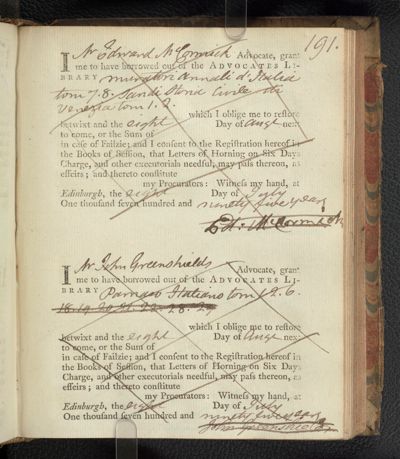 191.
I Mr Edward McCormick Advocate, grant
me to have borrowed out of the ADVOCATES LI-
BRARY muratori annali d'Italia
tom 7. 8. Sandi Storia Civile di
Venezia tom 1. 2.
which I oblige me to restore
betwixt and the eight Day of Augt next
to come, or the Sum of
in case of Failzie; and I consent to the Registration hereof in
the Books of Session, that Letters of Horning on Six Days
Charge, and other executorials needful, may pass thereon, as
effeirs; and thereto constitute
my Procurators: Witness my hand, at
Edinburgh, the eight Day of July
One thousand seven hundred and ninety five years
Ed. McCormick
I Mr John Greenshields Advocate, grant
me to have borrowed out of the ADVOCATES LI-
BRARY Parnaso Italiano tom 1 2. 6.
18. 19 20 21. 22. 28. 29
which I oblige me to restore
betwixt and the eight Day of Augt next
to come, or the Sum of
in case of Failzie; and I consent to the Registration hereof in
the Books of Session, that Letters of Horning on Six Days
Charge, and other executorials needful, may pass thereon, as
effeirs; and thereto constitute
my Procurators: Witness my hand, at
Edinburgh, the eight Day of July
One thousand seven hundred and ninety five years
John Greenshields